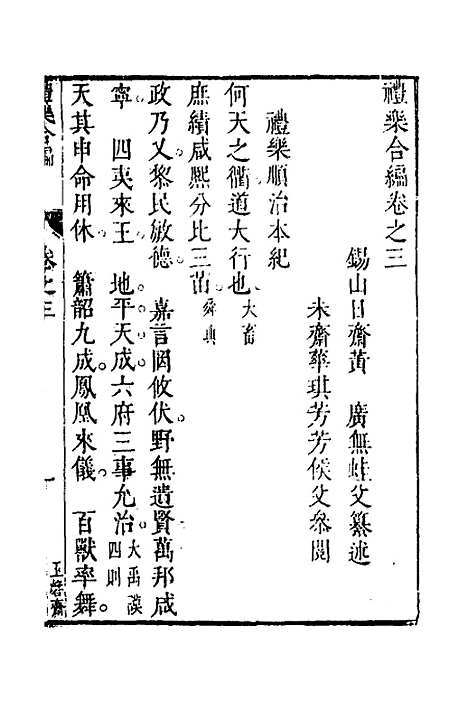 禮樂合編卷之三
錫山日齋黃 廣無蛙父纂述
未齋華琪芳芳侯父叅閱
禮樂順治本紀
何天之衢道大行也大畜
庶績咸熙分北三苗舜典
政乃乂黎民敏德 嘉言罔攸伏野無遺賢萬邦咸
寧 四夷來王 地平天成六府三事允治大禹謨四則
天其申命用休 簫韶九成鳳凰來儀 百獸率舞
禮樂合編
卷之三
一
玉磬齋